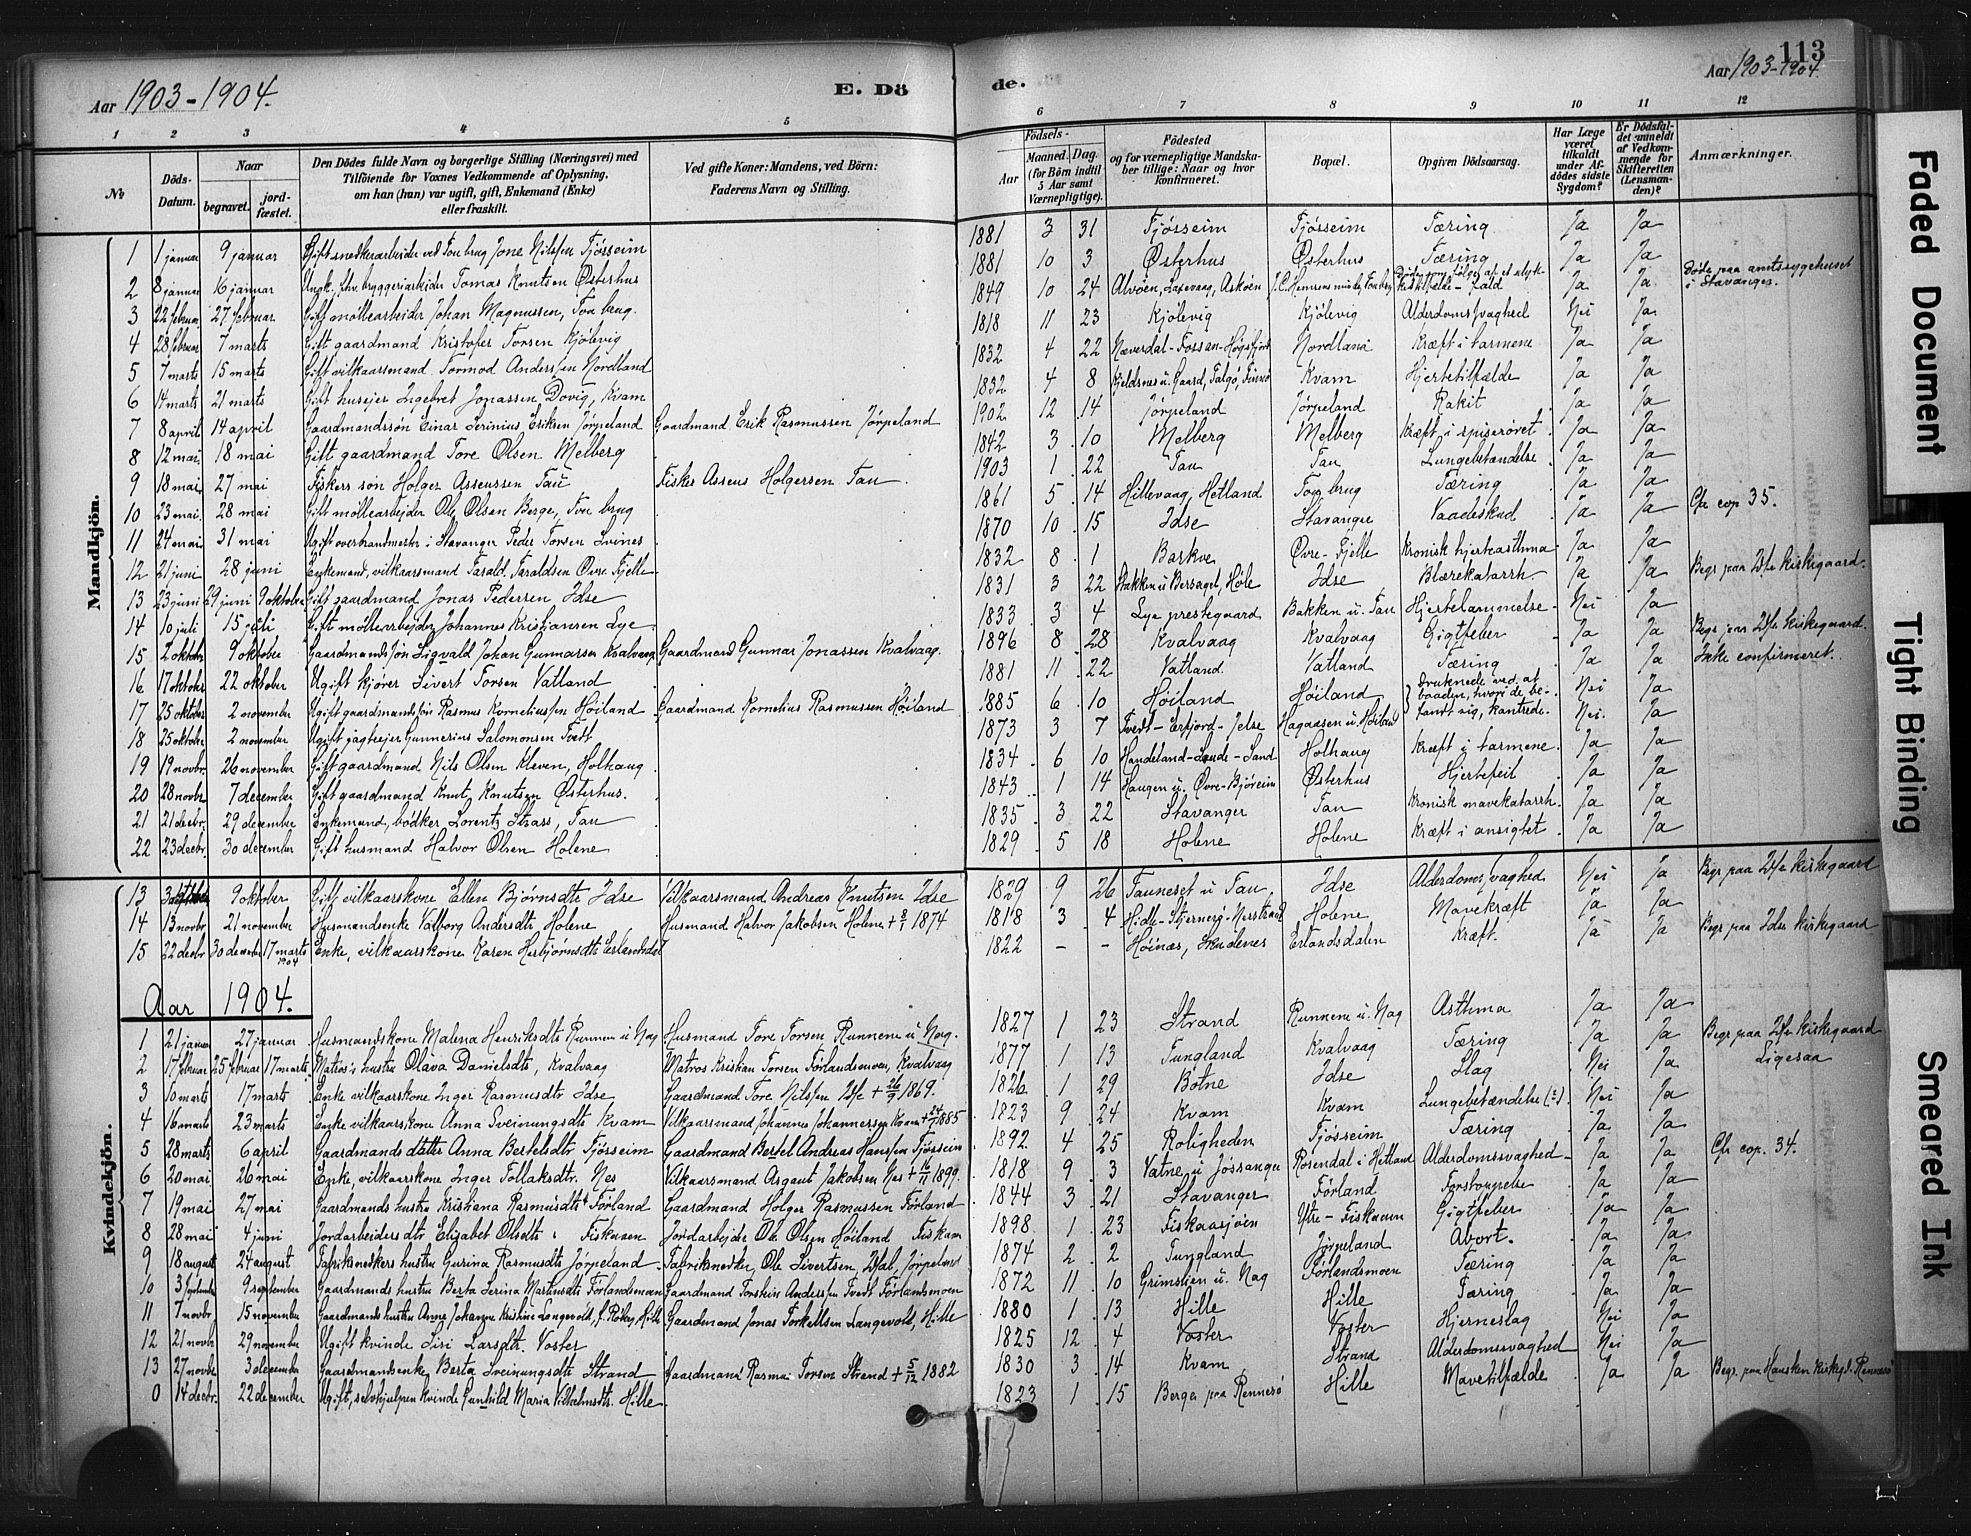 Aar 1903-1904.
E. Dö
de.
Aar 1903-1904.
113
1 2 3 4 5 6 7 8 9 10 11 12
№
Döds-Datum.
Naar
begravet.
jordfæstet.
Den Dödes fulde Navn og borgerlige Stilling (Næringsvei) med Tilföiende for Voxnes Vedkommende af Oplysning, om han (hun) var ugift, gift, Enkemand (Enke) eller fraskilt.
Ved gifte Koner: Mandens, ved Börn: Faderens Navn og Stilling.
Födsels-
Aar
Maaned. Dag.
(for Börn indtil 5 Aar samt Værnepligtige).
Födested og for værnepligtige Mandskaber tillige: Naar og hvor konfirmeret.
Bopæl.
Opgiven Dödsaarsag.
Har Læge været tilkaldt under Afdödes sidste Sygdom?
Er Dödsfaldet anmeldt af Vedkommende for Skifteretten (Lensmanden)?
Anmærkninger.
Mandkjön.
1 1 januar 9 januar Gift snedkerarbeider ved Tou brug Jone Nilsen Fjøsseim 1881 3 31 Fjøsseim Fjøsseim Tæring Ja Ja
2 8 januar 16 januar Ungk. fhv. bryggeriarbeider Tomas Knutsen Østerhus 1881 10 3 Østerhus Østerhus Tæring Ja Ja
3 22 februar 27 februar Gift møllearbeider Johan Magnussen, Tou brug. 1849 10 24 Alvøen, Laxevaag, Askøen Døde som følge af et ulykkestilfælde - fald Ja Ja Døde paa amtssygehuset i Stavanger.
4 28 februar 7 marts Gift gaardmand Kristofer Torsen Kjølevig 1818 11 23 Kjølevig Kjølevig Alderdomssvaghed Nei Ja
5 7 marts 15 marts Gift vilkaarsmand Tormod Andersen Nordland 1832 4 22 Næverdal-Fossan-Høgsfjord Nordland Kræft i tarmene Ja Ja
6 14 marts 21 marts Gift husejer Ingebret Jonassen Dovig, Kvam 1832 4 8 Kjeldsnes u. Gaard, Talgø, Finnø Kvam Hjertetilfælde Ja Ja
7 8 april 14 april Gaardmandssøn Einar Serinius Eriksen Jørpeland Gaardmand Erik Rasmussen Jørpeland 1902 12 14 Jørpeland Jørpeland Rakit Ja Ja
8 12 mai 18 mai Gift gaardmand Tore Olsen Melberg 1842 3 10 Melberg Melberg Kræft i spiserøret Ja Ja
9 18 mai 27 mai Fiskers søn Holger Assenssen Tau Fisker Assens Holgersen Tau 1903 1 22 Tau Tau Lungebetændelse Ja Ja
10 23 mai 28 mai Gift møllearbejder Ole Olsen Berge, Tou brug 1861 5 14 Hillevaag, Hetland Tou brug Tæring Ja Ja
11 24 mai 31 mai Ugift overbrandmester i Stavanger Peder Torsen Svines 1870 10 15 Idse Stavanger Vaadeskud Ja Ja Cfr cop 35.
12 21 juni 28 juni Enkemand, vilkaarsmand Tarald Taraldsen Øvre Fjelle 1832 8 1 Barkve Øvre-Fjelle Kronisk hjerteasthma Ja Ja
13 23 juni 29 juni 9 oktober Gift gaardmand Jonas Pedersen Idse 1831 3 22 Bakken u Bersagel, Høle Idse Blærekatarrh. Ja Ja Begr paa Idse kirkegaard.
14 10 juli 15 juli Gift møllearbejder Johannes Kristiansen Lye 1833 3 4 Lye prestegaard Bakken u. Tau Hjertelammelse Nei Ja
15 2 oktober 9 oktober Gaardmandssøn Sigvald Johan Gunnarsen Kvalvaag Gaardmand Gunnar Jonassen Kvalvaag. 1896 8 28 Kvalvaag Kvalvaag Gigtfeber Ja Ja Begr paa Idse kirkegaard.
16 17 oktober 22 oktober Ugift kjører Sivert Torsen Vatland 1881 11 22 Vatland Vatland Tæring Ja Ja Ikke confirmeret.
17 25 oktober 2 november Ugift gaardmandssøn Rasmus Korneliussen Høiland Gaardmand Kornelius Rasmussen Høiland 1885 6 10 Høiland Høiland Druknede ved at baaden, hvori de befandt sig, kantrede. Nei Ja
18 25 oktober 2 november Ugift jagteejer Gunnerius Salomonsen Tvedt 1873 3 7 Tvedt-Erfjord-Jelse Hagaasen u. Høiland Nei Ja
19 19 novbr. 26 november Gift gaardmand Nils Olsen Kleven, Holhaug 1834 6 10 Handeland-Sande-Sand Holhaug Kræft i tarmene Ja Ja
20 28 novbr 7 december Gift gaardmand Knut Knutsen Østerhus. 1843 1 14 Haugen u. Øvre-Bjørheim Østerhus Hjertefeil Ja Ja
21 21 decbr. 29 december Enkemand, bødker Lorentz Strass, Tau 1835 3 22 Stavanger Tau Kronisk mavekatarrh. Ja Ja
22 23 decbr. 30 december Gift husmand Halvor Olsen Holene 1829 5 18 Holene Holene Kræft i ansigtet Ja Ja
13 9 oktober Gift, vilkaarskone Ellen Bjørnsdtr Idse Vilkaarsmand Andreas Knutsen Idse 1829 9 26 Tauneset u Tau. Idse Alderdomssvaghed Nei Ja Begr paa Idse kirkegaard
14 13 novbr 21 november Husmandsenke Valborg Andersdtr Holene Husmand Halvor Jakobsen Holene 1874 1818 3 4 Hidle-Stjernerø-Nerstrand Holene Mavekræft Ja Ja
15 22 decbr 30 december 17 marts 1904 Enke, vilkaarskone Karen Herbjørnsdtr Erlandsdal 1822 - - Høinæs, Skudenes Erlandsdalen Kræft. Ja Ja Begr paa Idse kirkegaard
Aar 1904.
Kvindekjön.
1 21 januar 27 januar Husmandskone Malena Henriksdtr Runnen u Nag Husmand Tore Torsen Runnene u. Nag. 1827 1 23 Strand Runnene u. Nag Asthma Ja Ja
2 17 februar 25 februar 17 marts Matros's hustru Olava Danielsdtr, Kvalvaag Matros Kristian Torsen Førlandsmoen, Kvalvaag 1877 1 13 Tungland Kvalvaag Tæring Ja Ja Begr paa Idse kirkegaard
3 10 marts 17 marts Enke vilkaarskone Inger Rasmusdtr Idse Gaardmand Tore Nilssen Idse + 26/9 1869. 1826 1 29 Botne Idse Slag Nei Ja Ligesaa
4 16 marts 23 marts Enke vilkaarskone Anna Sveinungsdtr Kvam Vilkaarsmand Johannes Johannessen Kvam 1885 1823 9 24 Kvam Kvam Lungebetændelse (?). Nei Ja
5 28 marts 6 april Gaardmands datter Anna Bertelsdtr Fjøsseim Gaardmand Bertel Andreas Hanssen Fjøsseim 1892 4 25 Roligheden Fjøsseim Tæring Ja Ja
6 20 mai 26 mai Enke, vilkaarskone Inger Tollaksdtr. Nes Vilkaarsmand Asgaut Jakobsen Nes + 16/11 1899. 1818 9 3 Vatne u Jøssangen Rosendal i Hetland Alderdomssvaghed Ja Ja Cfr cop. 34.
7 19 mai 27 mai Gaardmands hustru Kristiana Rasmusdtr Førland Gaardmand Holger Rasmussen Førland 1844 3 21 Stavanger Førland Forstoppelse Ja Ja
8 28 mai 4 juni Jordarbeiders dtr Elisabet Olsdtr Fiskaaen Jordarbejder Ole Olsen Høiland Fiskaaen 1898 1 23 Fiskaasjøen Ytre-Fiskaaen Gigtfeber Ja Ja
9 18 august 24 august Fabriksnedkers hustru Gurina Rasmusdtr Jørpeland Fabriksnedker Ole Sivertsen, Idsal, Jørpeland 1874 2 2 Tungland Jørpeland Abort. Ja Ja
10 3 september 9 september Gaardmands hustru Berta Serina Martinsdtr Førlandsmoen Gaardmand Torstein Anderssen Tvedt Førlandsmoen 1872 11 10 Grimslien u. Nag Førlandsmoen Tæring Ja Ja
11 7 novbr 15 november Gaardmands hustru Anne Johanne Kristine Langevold, Hille Gaardmand Jonas Torkellsen Langevold, Hille 1880 1 13 Hille Hille Tæring Ja Ja
12 21 novbr 29 november Ugift kvinde Siri Larsdtr. Voster 1825 12 4 Voster Voster Hjerneslag Nei Ja
13 27 novbr 3 december Gaardmandsenke Berta Sveinungsdtr Strand Gaardmand Rasmus Torsen Strand + 5/12 1882 1830 3 14 Kvam Strand Alderdomssvaghed Nei Ja
0 14 decbr. 22 december Ugift, selvhjulpen kvinde Gunhild Maria Vilhelmsdtr. Hille 1823 1 15 Berge paa Rennesø Hille Mavetilfælde Ja Ja Begr. paa Hausken kirkegd. Rennesø
Faded Document
Tight Binding
Smeared Ink